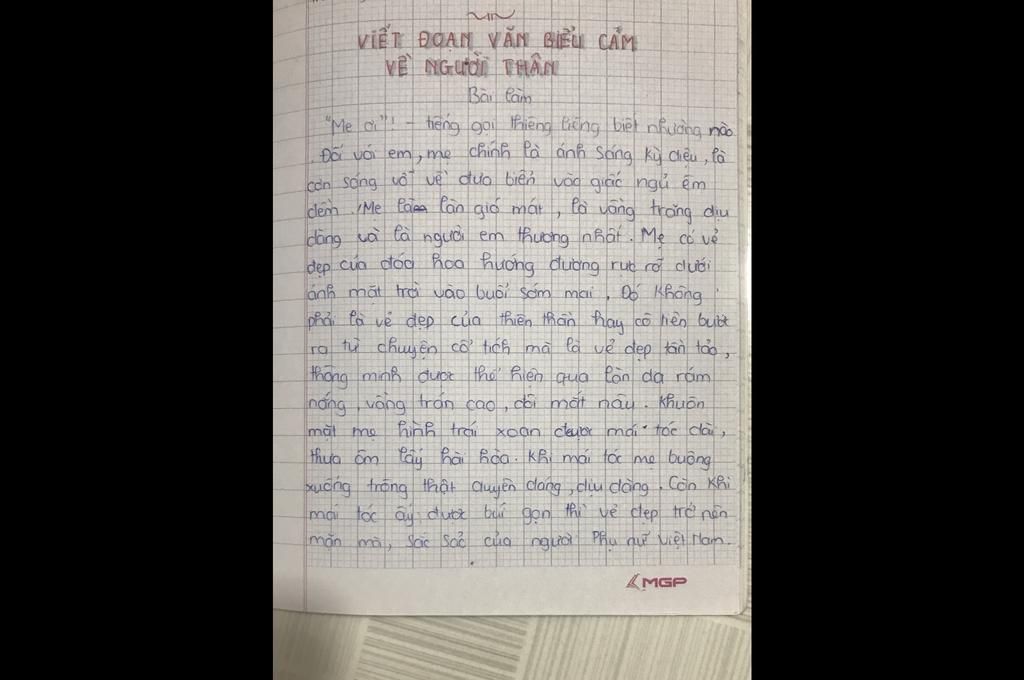 VIẾT ĐOẠN VĂN BIỂU CẢM
VỀ NGƯỜI THÂN
Bài làm
"Mẹ ơi"! - tiếng gọi thiêng liêng biết nhường nào
. Đối với em, mẹ chính là ánh sáng kỳ diệu, là
con sóng vỗ về đưa biển vào giấc ngủ êm
đềm. Mẹ là làn gió mát, là vầng trăng dịu
dàng và là người em thương nhất. Mẹ có vẻ
đẹp của đóa hoa hướng dương rực rỡ dưới
ánh mặt trời vào buổi sớm mai. Đó không
phải là vẻ đẹp của thiên thần hay cô tiên bước
ra từ chuyện cổ tích mà là vẻ đẹp tần tảo,
thông minh được thể hiện qua làn da rám
nắng, vầng trán cao, đôi mắt nâu. Khuôn
mặt mẹ hình trái xoan được mái tóc dài,
thưa ôm lấy hài hòa. Khi mái tóc mẹ buông
xuống trông thật duyên dáng, dịu dàng. Còn khi
mái tóc ấy được búi gọn thì vẻ đẹp trở nên
mặn mà, sắc sảo của người Phụ nữ Việt Nam.
MGP